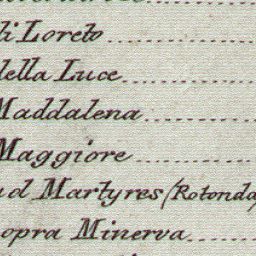 di Loreto
della Luce
Maddalena
Maggiore
ad Martyres (Rotonda)
sopra Minerva